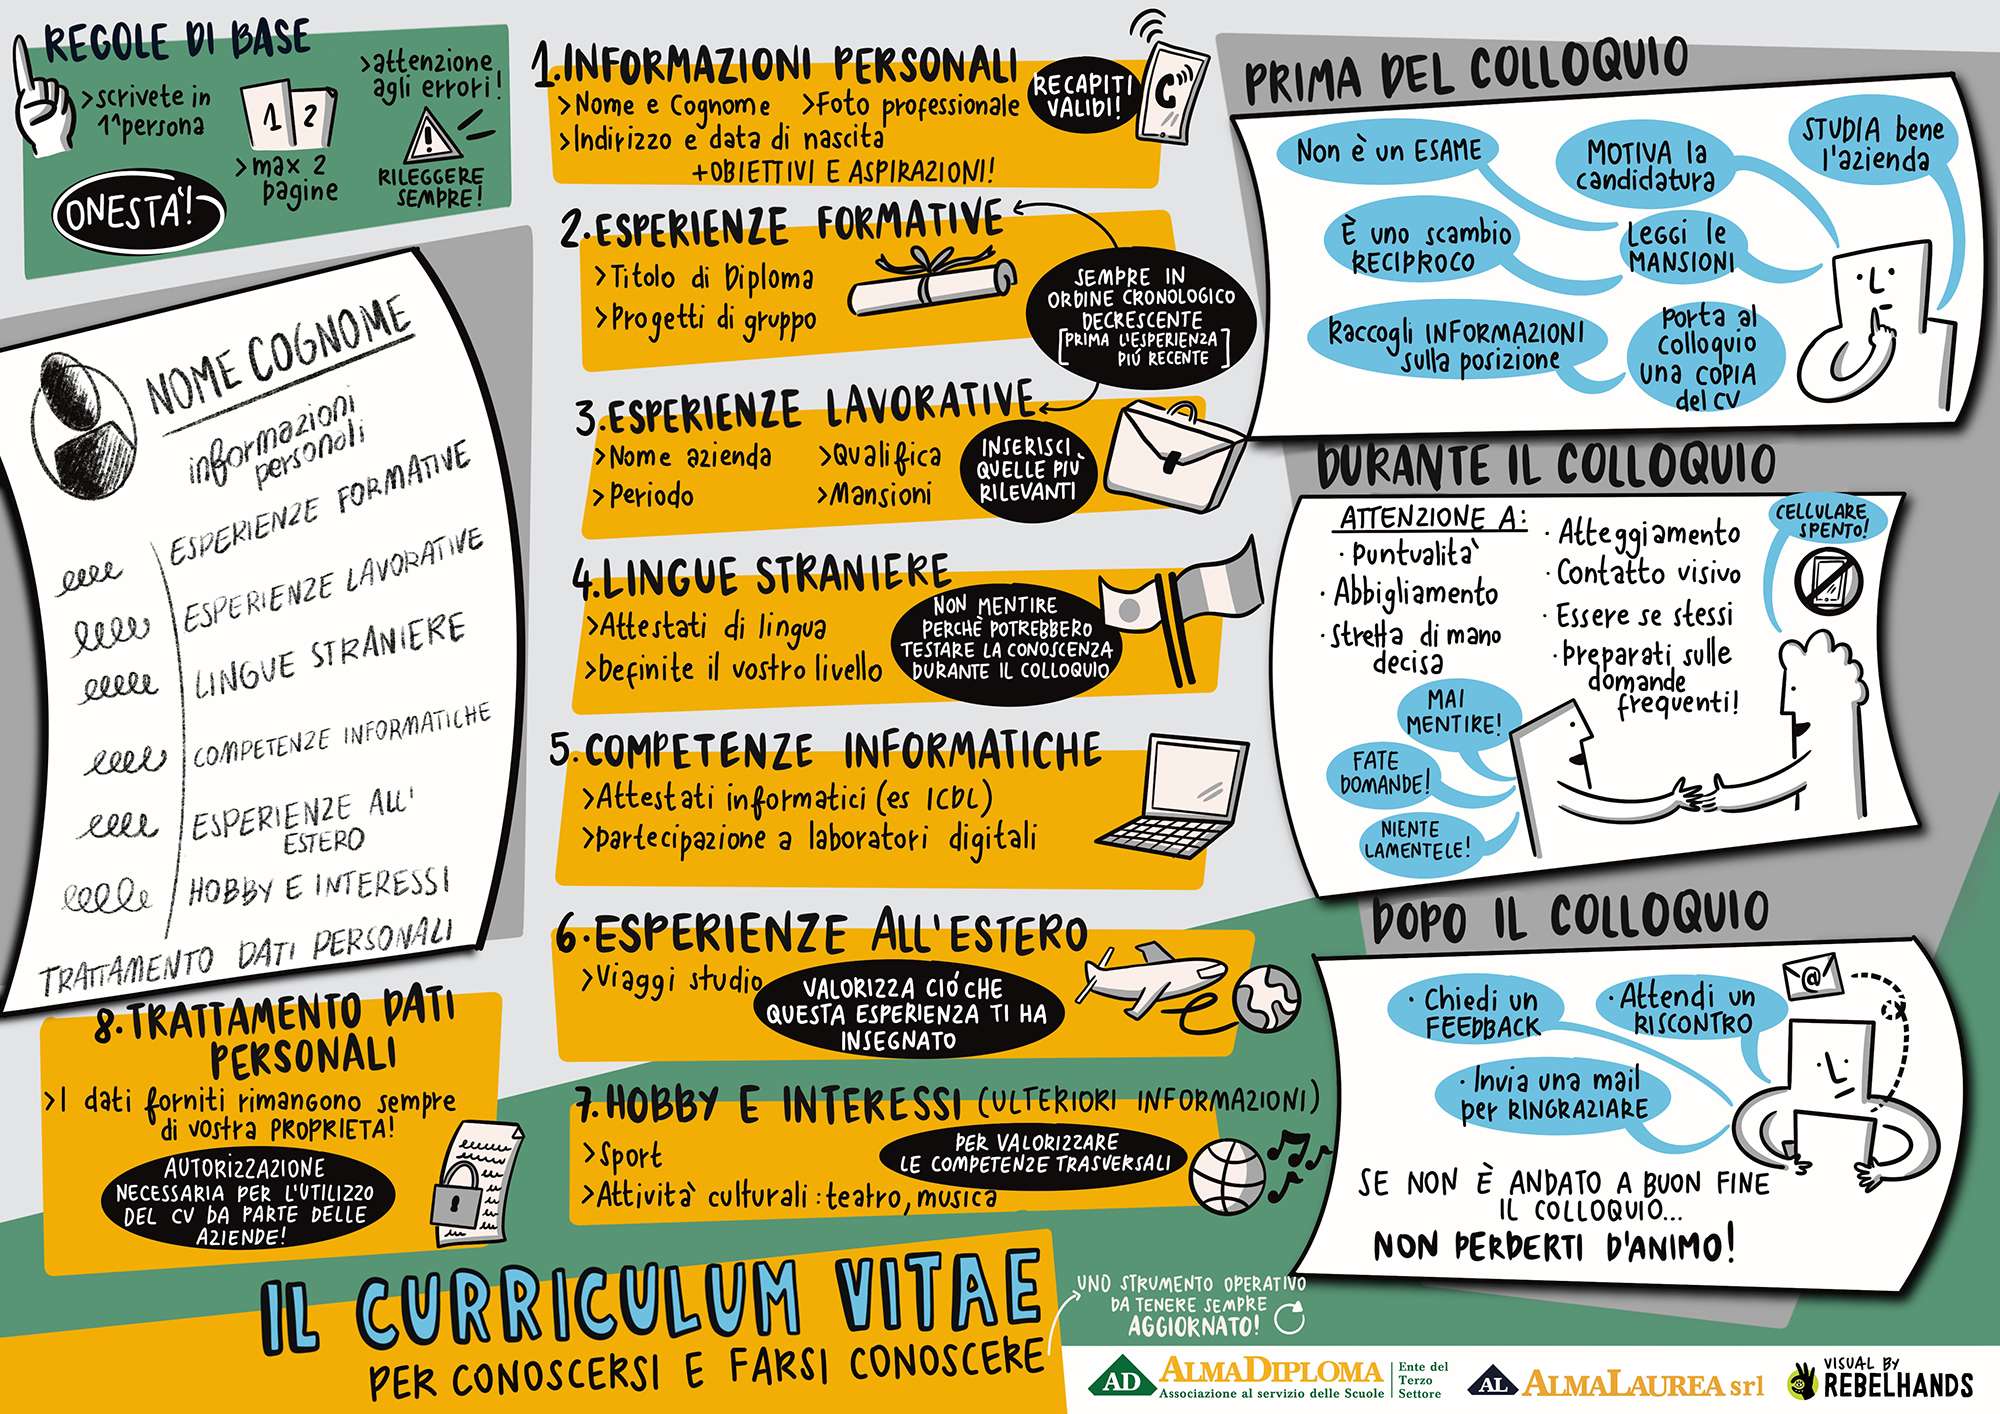 REGOLE DI BASE
>scrivete in
1^persona
1 2
>max 2
pagine
>attenzione
agli errori!
!
RILEGGERE
SEMPRE!
ONESTA'!
NOME COGNOME
informazioni
personali
ESPERIENZE FORMATIVE
ESPERIENZE LAVORATIVE
LINGUE STRANIERE
COMPETENZE INFORMATICHE
ESPERIENZE ALL'
ESTERO
HOBBY E INTERESSI
TRATTAMENTO DATI PERSONALI
1.INFORMAZIONI PERSONALI
>Nome e Cognome >Foto professionale
>Indirizzo e data di nascita
+OBIETTIVI E ASPIRAZIONI!
RECAPITI
VALIDI!
2.ESPERIENZE FORMATIVE
>Titolo di Diploma
>Progetti di gruppo
SEMPRE IN
ORDINE CRONOLOGICO
DECRESCENTE
[PRIMA L'ESPERIENZA
PIÚ RECENTE]
3.ESPERIENZE LAVORATIVE
>Nome azienda >Qualifica
>Periodo >Mansioni
INSERISCI
QUELLE PIÙ
RILEVANTI
4.LINGUE STRANIERE
>Attestati di lingua
>Definite il vostro livello
NON MENTIRE
PERCHÈ POTREBBERO
TESTARE LA CONOSCENZA
DURANTE IL COLLOQUIO
5.COMPETENZE INFORMATICHE
>Attestati informatici (es ICDL)
>partecipazione a laboratori digitali
6.ESPERIENZE ALL'ESTERO
>Viaggi studio
VALORIZZA CIÓ CHE
QUESTA ESPERIENZA TI HA
INSEGNATO
7.HOBBY E INTERESSI (ULTERIORI INFORMAZIONI)
>Sport
>Attivita' culturali: teatro, musica
PER VALORIZZARE
LE COMPETENZE TRASVERSALI
8.TRATTAMENTO DATI
PERSONALI
>I dati forniti rimangono sempre
di vostra PROPRIETA!
AUTORIZZAZIONE
NECESSARIA PER L'UTILIZZO
DEL CV DA PARTE DELLE
AZIENDE!
PRIMA DEL COLLOQUIO
Non è un ESAME
MOTIVA la
candidatura
STUDIA bene
l'azienda
È uno scambio
RECIPROCO
LEGGI le
MANSIONI
Raccogli INFORMAZIONI
sulla posizione
porta al
colloquio
una COPIA
del CV
DURANTE IL COLLOQUIO
ATTENZIONE A:
· Puntualita'
· Abbigliamento
· Stretta di mano
decisa
· Atteggiamento
· Contatto visivo
· Essere se stessi
· preparati sulle
domande
frequenti!
CELLULARE
SPENTO!
MAI
MENTIRE!
FATE
DOMANDE!
NIENTE
LAMENTELE!
DOPO IL COLLOQUIO
· Chiedi un
FEEDBACK
· Attendi un
RISCONTRO
@
· Invia una mail
per RINGRAZIARE
SE NON È ANDATO A BUON FINE
IL COLLOQUIO...
NON PERDERTI D'ANIMO!
IL CURRICULUM VITAE
PER CONOSCERSI E FARSI CONOSCERE
UNO STRUMENTO OPERATIVO
DA TENERE SEMPRE
AGGIORNATO!
AD ALMADIPLOMA
Associazione al servizio delle Scuole
Ente del
Terzo
Settore
AL ALMALAUREA srl
VISUAL BY
REBELHANDS